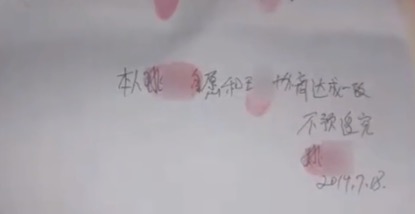 本人姚 自愿和王 协商达成一致
不予追究
姚
2019.7.18.